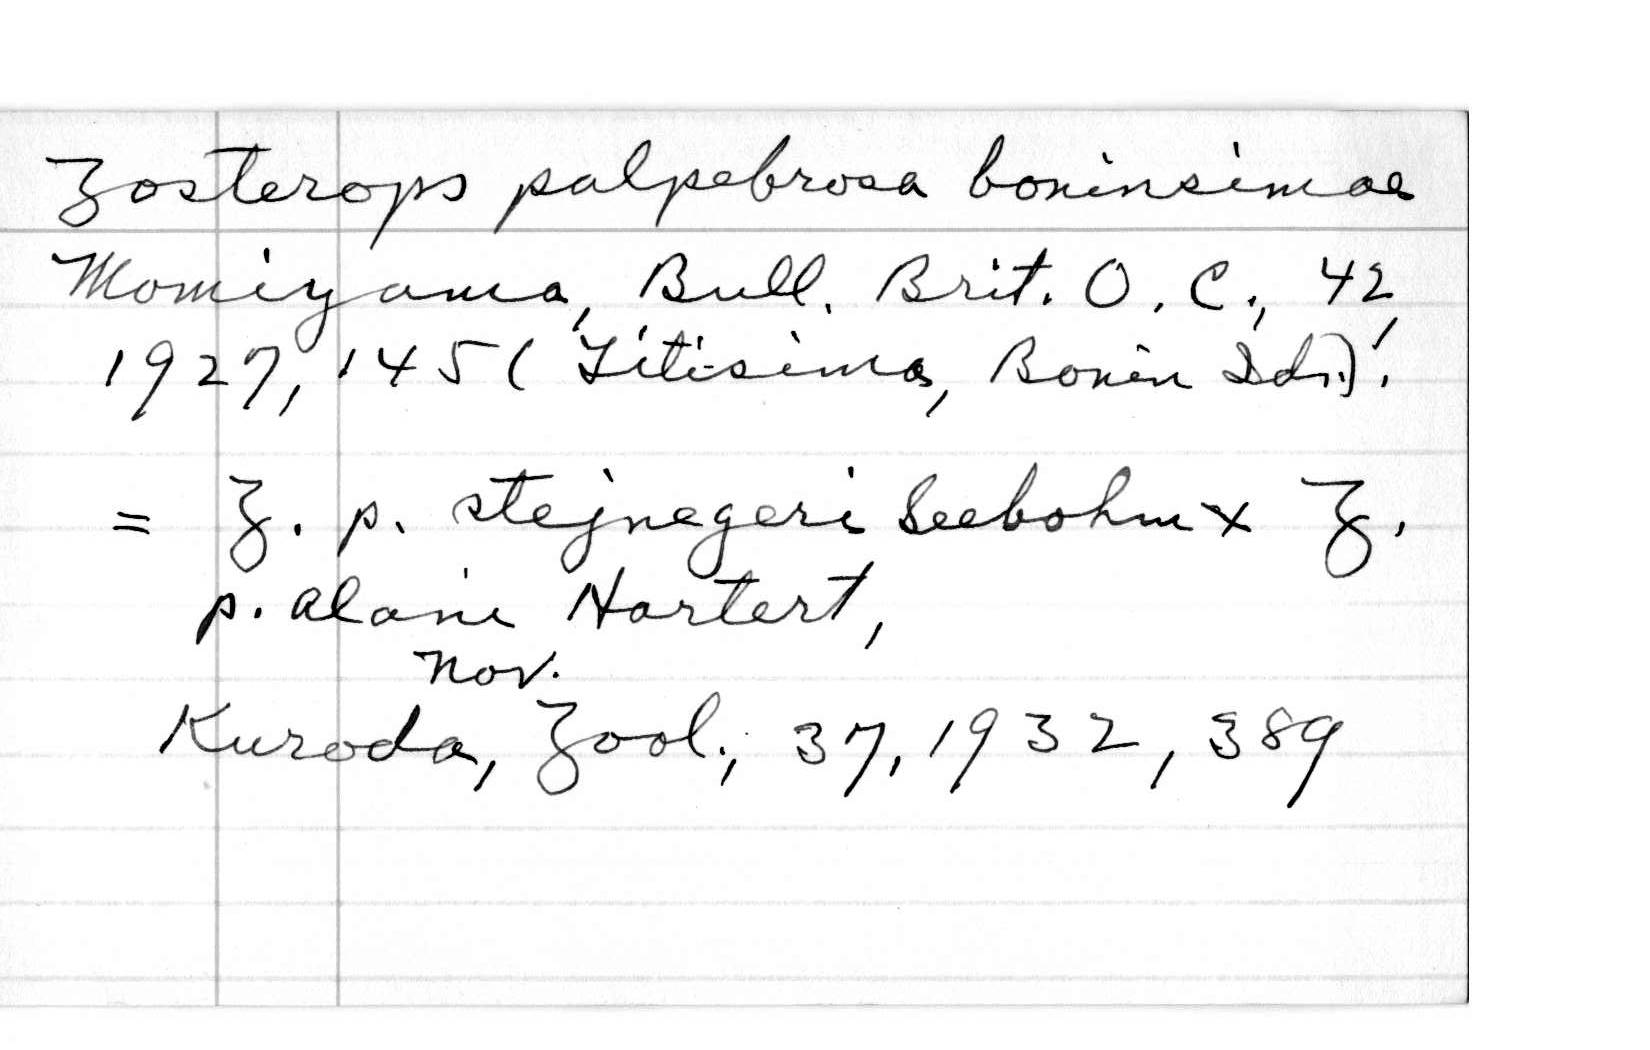 Zosterops palpebrosa boninsimae
Momiyama, Bull. Brit. O. C., 42,
1927, 145 (Titisima, Bonin Ids.)!
= Z. p. stejnegeri Seebohm x Z.
p. alani Hartert,
Nov.
Kuroda, Zool., 37, 1932, 389